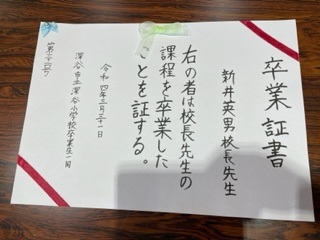 卒業証書
新井英男校長先生
右の者は校長先生の
課程を卒業した
ことを証する。
令和四年三月三十一日
深谷市立深谷小学校卒業生一同